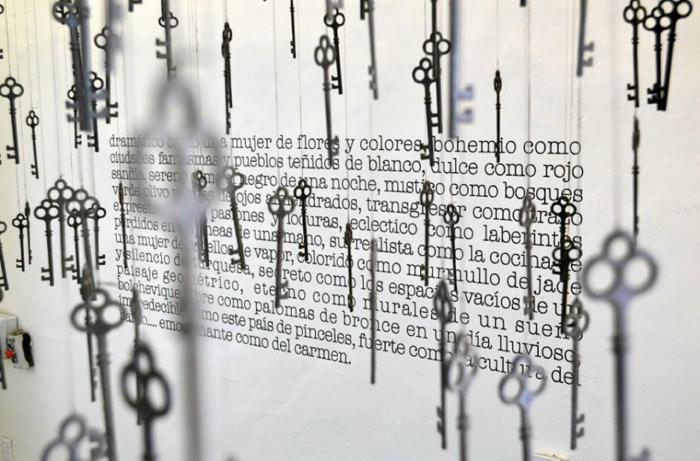 dramático como una mujer de flores y colores, bohemio como
ciudades fantasmas y pueblos teñidos de blanco, dulce como rojo
sandía, sereno como negro de una noche, místico como bosques
verde olivo y de ojos cuadrados, transgresor como
pasiones y locuras, eclectico como laberintos
perdidos en líneas de una mano, surrealista como la cocina de
una mujer de cabellos de vapor, colorido como murmullo de jade
y silencio de turquesa, secreto como los espacios vacíos de un
paisaje geométrico, eterno como murales de un sueño
bolchevique, libre como palomas de bronce en un día lluvioso,
impredecible como este país de pinceles, fuerte como la cultura del
emocionante como del carmen.